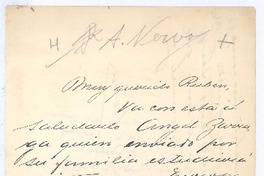 A. Nervo
Muy querido Rubén,
Va con esta á
saludarte Angel Zarra
ga quien enviado por
su familia estudiará